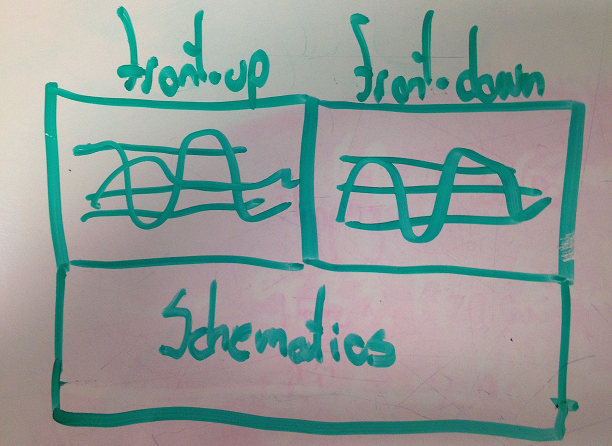 front-up front-down
Schematics